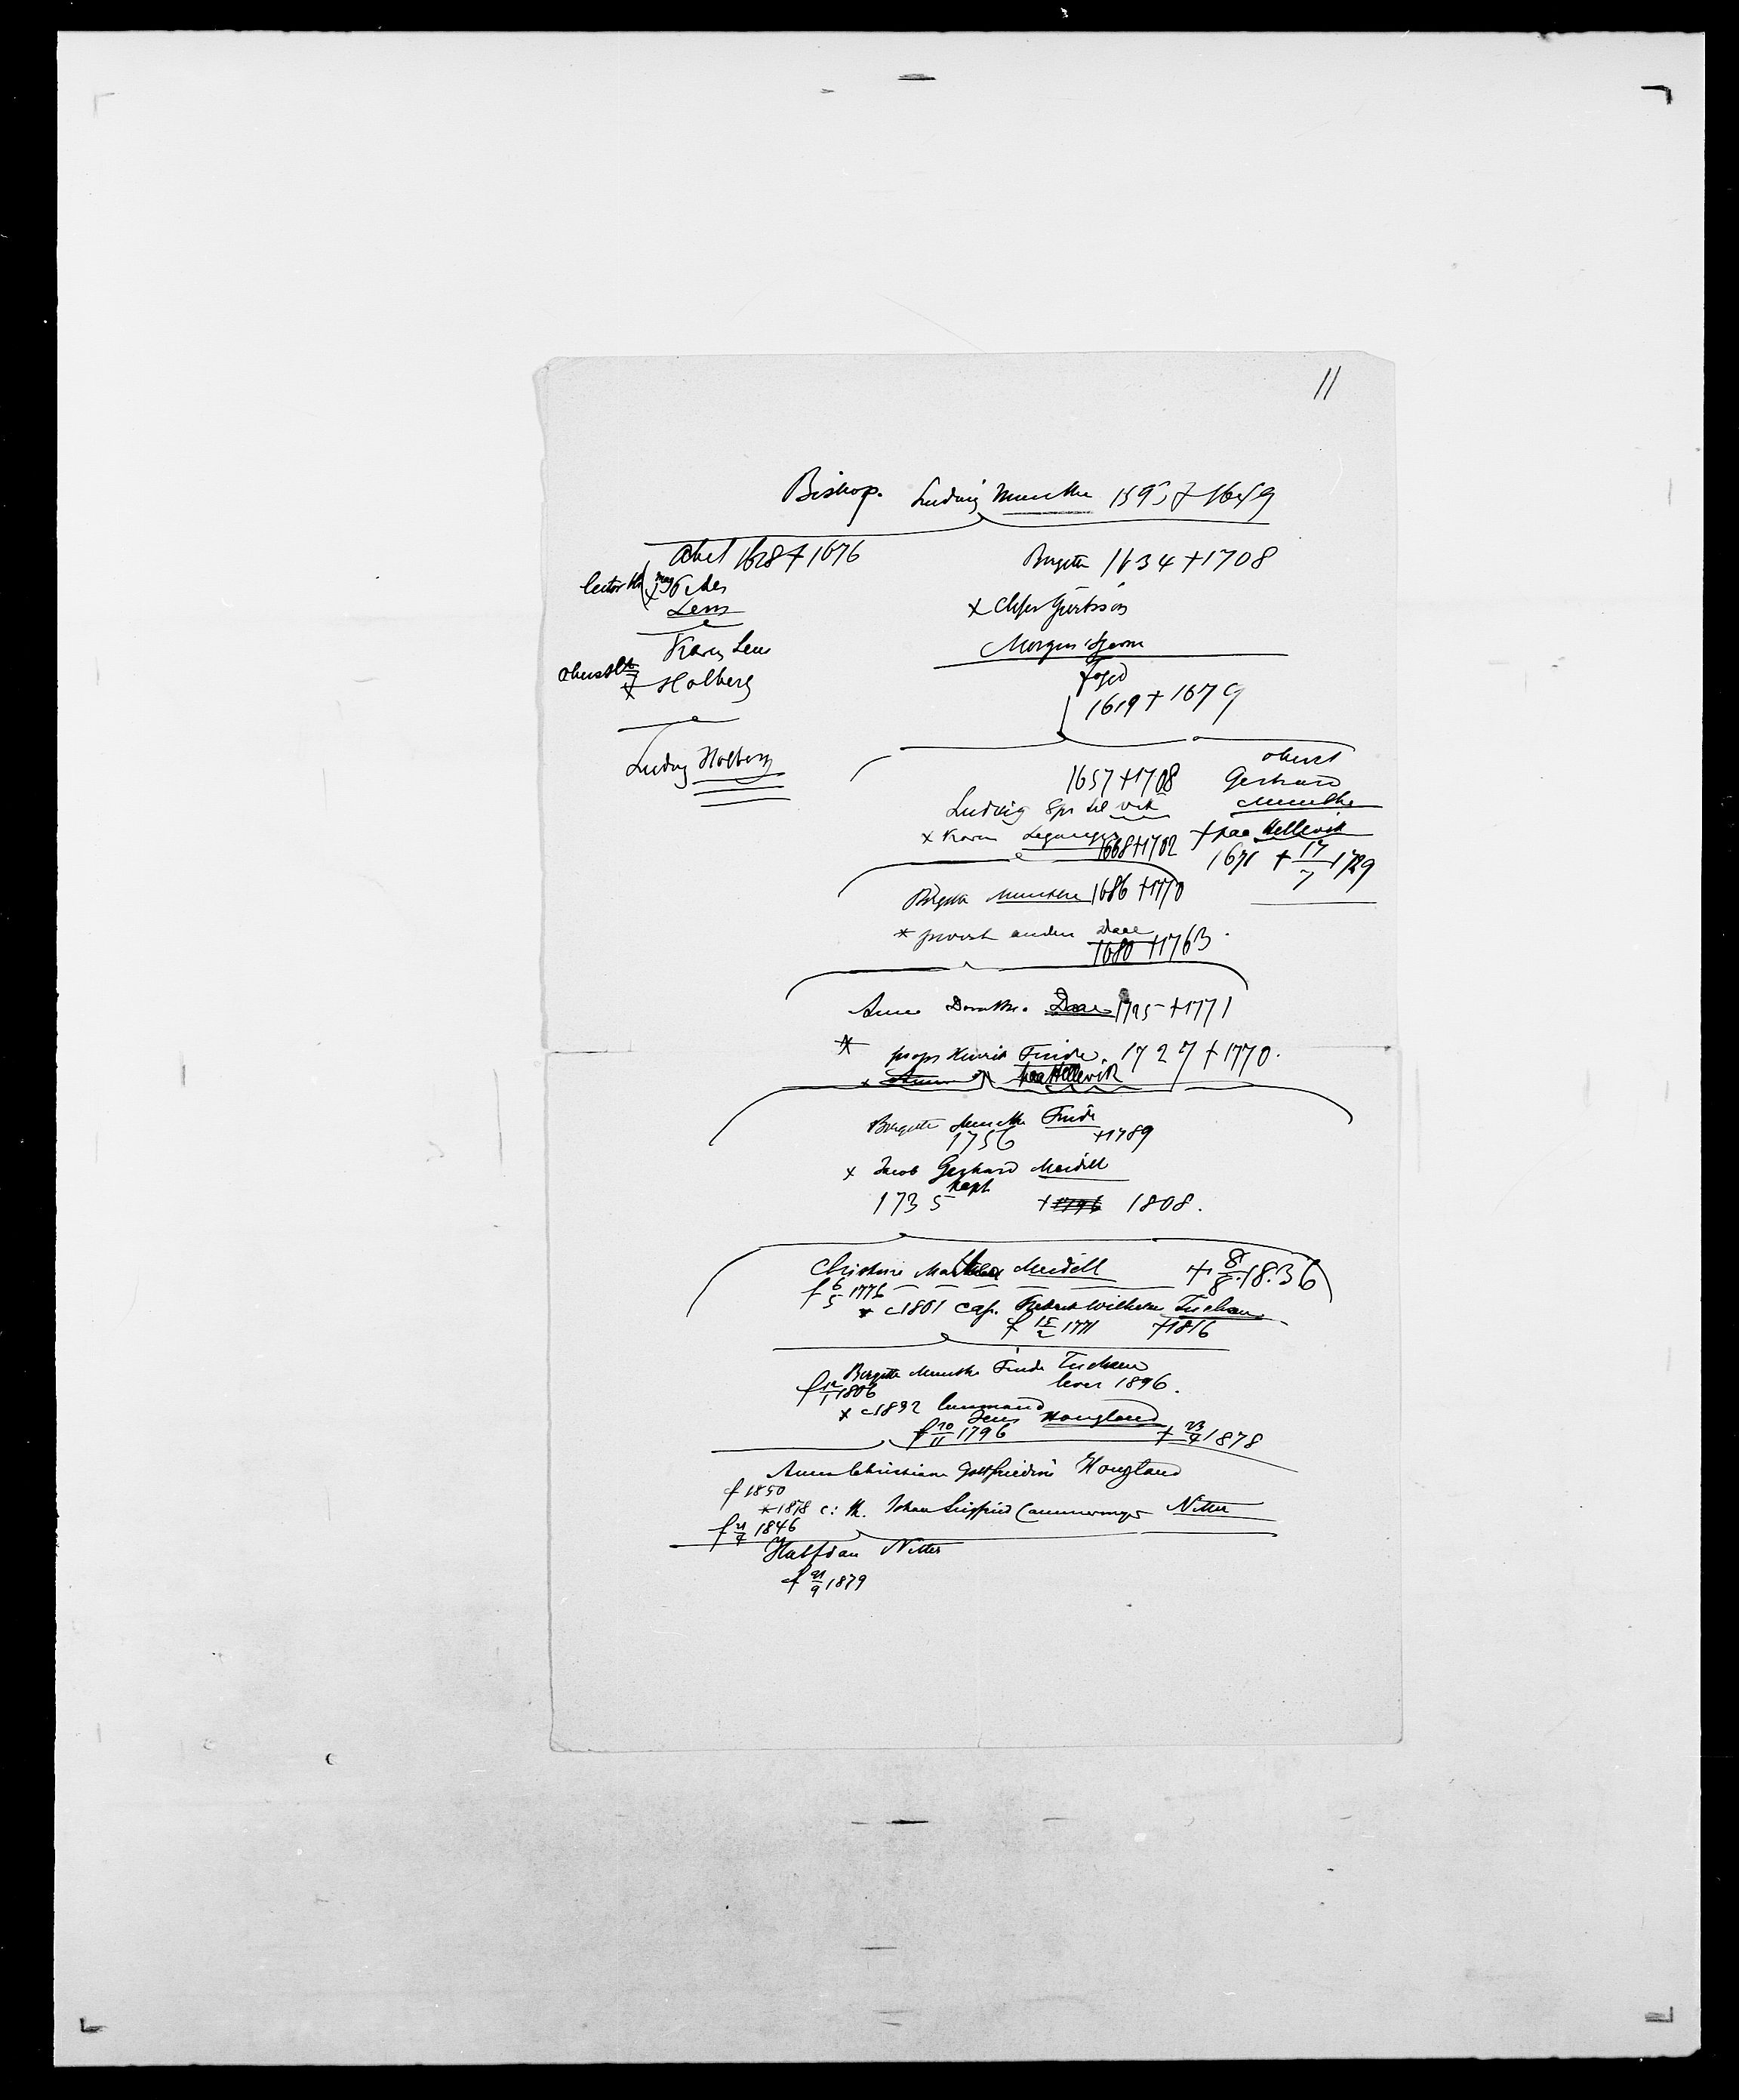 11
Bishop. Ludvig Munthe 1593 † 1649
Abel 1628 † 1676
Lem
Karen Lem
x Holberg
Ludvig Holberg
Birgitte 1634 † 1708
x Chfer Giertssøn
Morgenstjerne
foged
1619 † 1679
1657 † 1708
Ludvig Spr til Vik
x Karen Leganger
1668 † 1702
oberst
Gerhard
Munthe
† paa Hellevik
1671 † 17/7 1729
Birgitte Munthe 1686 † 1770
* provst anders Daae
1680 † 1763.
Anne Dorothea Daae 1725 † 1771
* Henrik Finde 1727 † 1770.
paa Hellevik
Birgitte Munthe Finde
1756 † 1789
x Jacob Gerhard Meidell
kapt
1735 † 1796 1808.
Christine Meidell † 8/8. 18.36
f 6/5 1776
* c 1801 cap. Fredrik Wilhelm Tuchsen
f 15/2 1771 † 1816
Birgitte Munthe Finde Tuchsen
f 12/1 1806 lever 1896.
x c 1832
Jens Hougland
f 20/11 1796 † 23/4 1878
Anna Christiane Gottfriedine Hougland
f 1850
* 1878 Johan Siegfried Cammermeyer Nitter
f 21/4 1846
Halfdan Nitter
f 21/9 1879